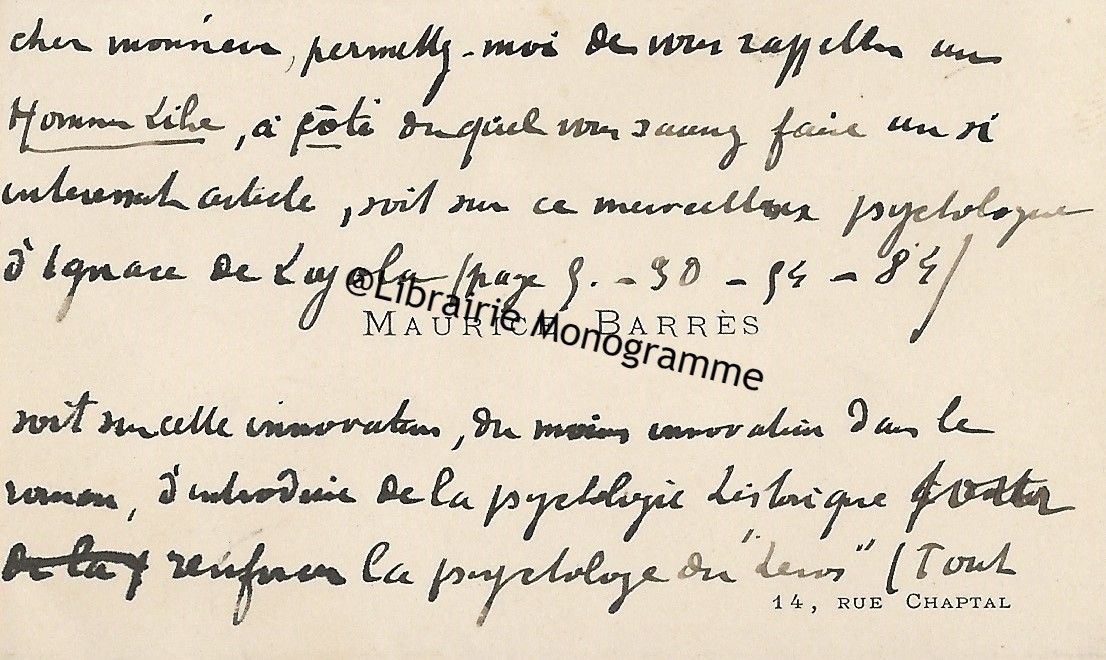 cher monsieur, permettez-moi de vous rappeller un
Homme Libre, à côté duquel vous saurez faire un si
interessant article, soit sur ce merveilleux psychologue
d'Ignace de Loyola (page 5. - 30 - 54 - 84)
@Librairie Monogramme
MAURICE BARRÈS
soit sur cette innovation, du moins innovation dans le
roman, d'introduire de la psychologie historique pour
de la renforcer la psychologie du "heros" (Tout
14, RUE CHAPTAL